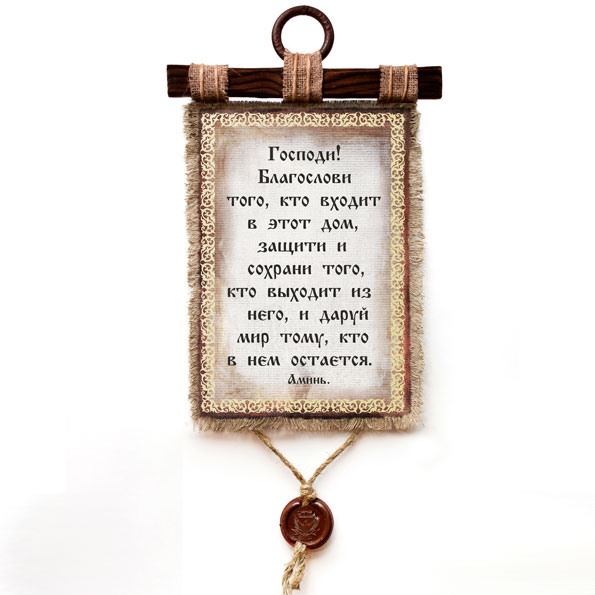 Господи!
Благослови
того, кто входит
в этот дом,
защити и
сохрани того,
кто выходит из
него, и даруй
мир тому, кто
в нем остается.
Аминь.